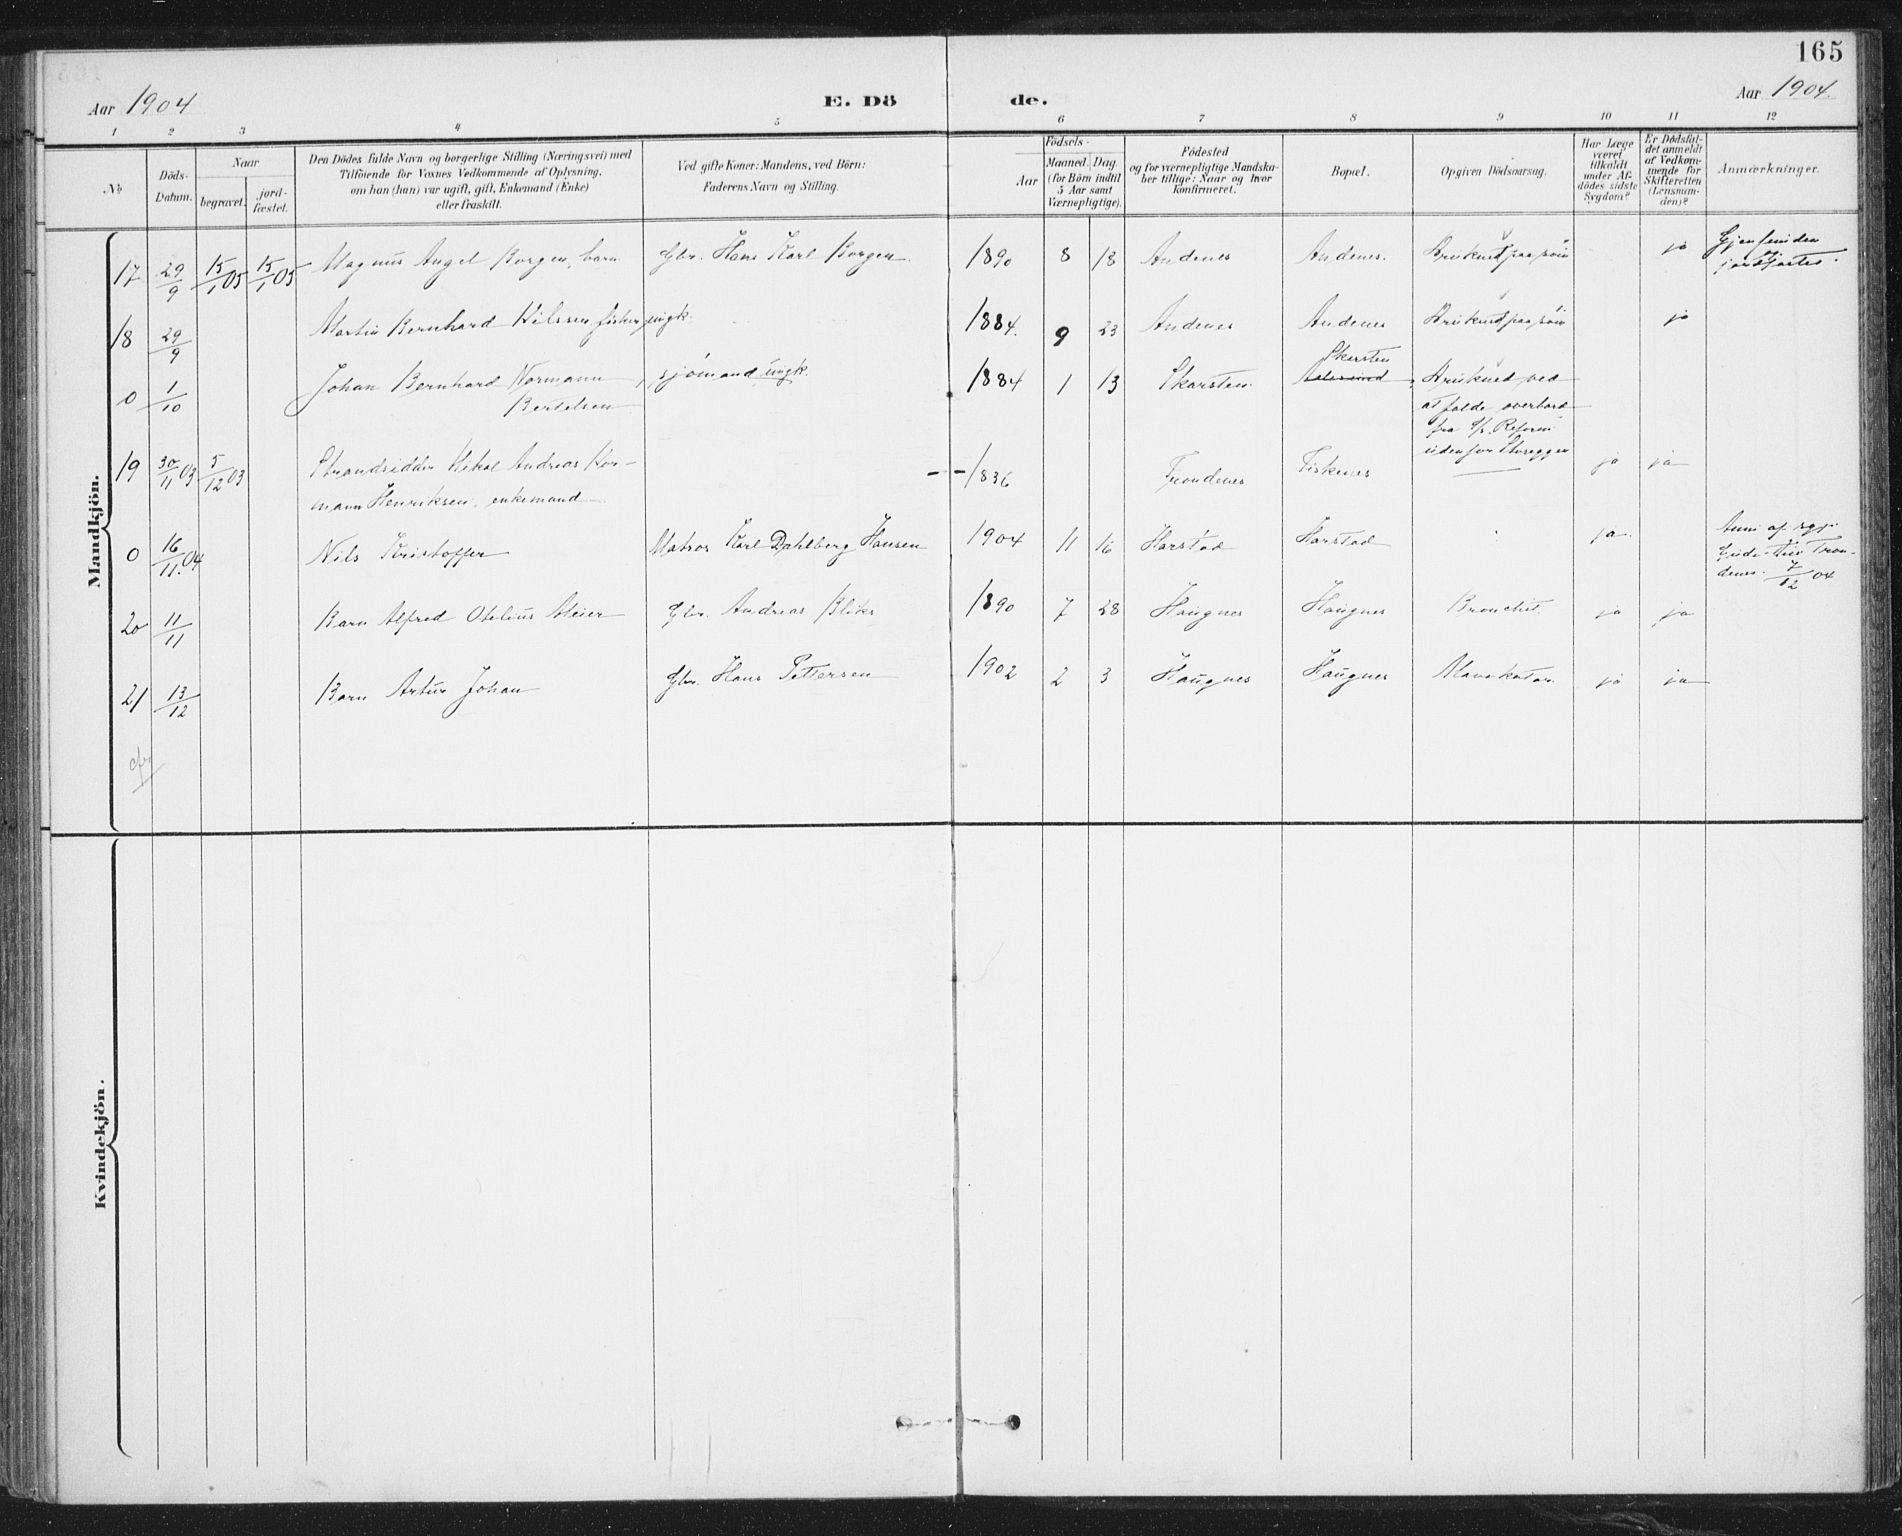 165
Aar 1904
E. Dö
de.
Aar 1904.
1 2 3 4 5 6 7 8 9 10 11 12
No
Döds-
Datum.
Naar
begravet.
jord-
fæstet.
Den Dödes fulde Navn og borgerlige Stilling (Næringsvei) med
Tilföiende for Voxnes Vedkommende af Oplysning,
om han (hun) var ugift, gift, Enkemand (Enke)
eller fraskilt.
Ved gifte Koner: Mandens, ved Börn:
Faderens Navn og Stilling.
Födsels-
Aar
Maaned. Dag.
(for Börn indtil
5 Aar samt
Værnepligtige).
Födested
og for værnepligtige Mandska-
ber tillige: Naar og hvor
Konfirmeret.
Bopæl.
Opgiven Dödsaarsag.
Har Læge
været
tilkaldt
under Af-
dödes sidste
Sygdom?
Er Dödsfal-
det anmeldt
af Vedkom-
mende for
Skifteretten
(Lensman-
den)?
Anmærkninger.
Mandkjön.
17 29/9 15/1 05 15/1 05 Magnus Angel Borgen, barn Gbr. Hans Karl Borgen 1890 8 18 Andenes Andenes. Druknet paa söen ja Gjenfunden
jordfæstet.
18 29/9 Martin Bernhard Nilssen, fisker, ungk. 1884. 9 23 Andenes Andenes Druknet paa söen ja
0 1/10 Johan Bernhard Normann
Bertelsen
, sjömand ungk. 1884 1 13 Skarsten. Skarsten
Druknet ved
at falde overbord
fra S/s. Reform
udenfor Storeggen
19 30/11 03 5/12 03 Strandsidder Nikol Andreas Nor-
mann Henriksen, enkemand
1836 Trondenes Fiskenes — ja ja
0 16/11. 04 Nils Kristoffer Matros Karl Dahlberg Hansen 1904 11 16 Harstad Harstad ja.
Anm af sgpr
Tron-
denes. 7/12 04
20 11/11 Barn Alfred Otelius Meier Gbr. Andreas Bliks 1890 7 28 Haugnes Haugnes Bronchit. ja ja
21 13/12 Barn Artur Johan Gbr. Hans Pettersen 1902 2 3 Haugnes Haugnes Mavekatar. ja ja
Kvindekjön.